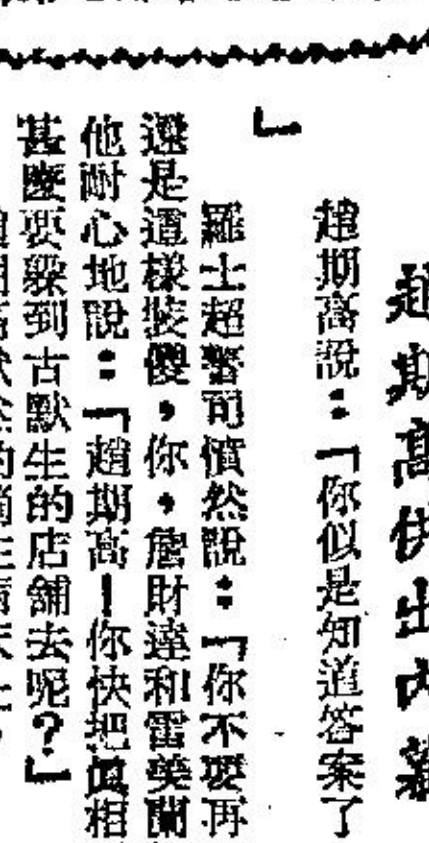 趙期高供出內幕
趙期高說：「你似是知道答案了
」
羅士超警司憤然說：「你不要再
還是這樣裝傻，你，詹財達和雷美蘭
他耐心地說：「趙期高！你快把眞相
甚麼要躱到古默生的店舖去呢？」